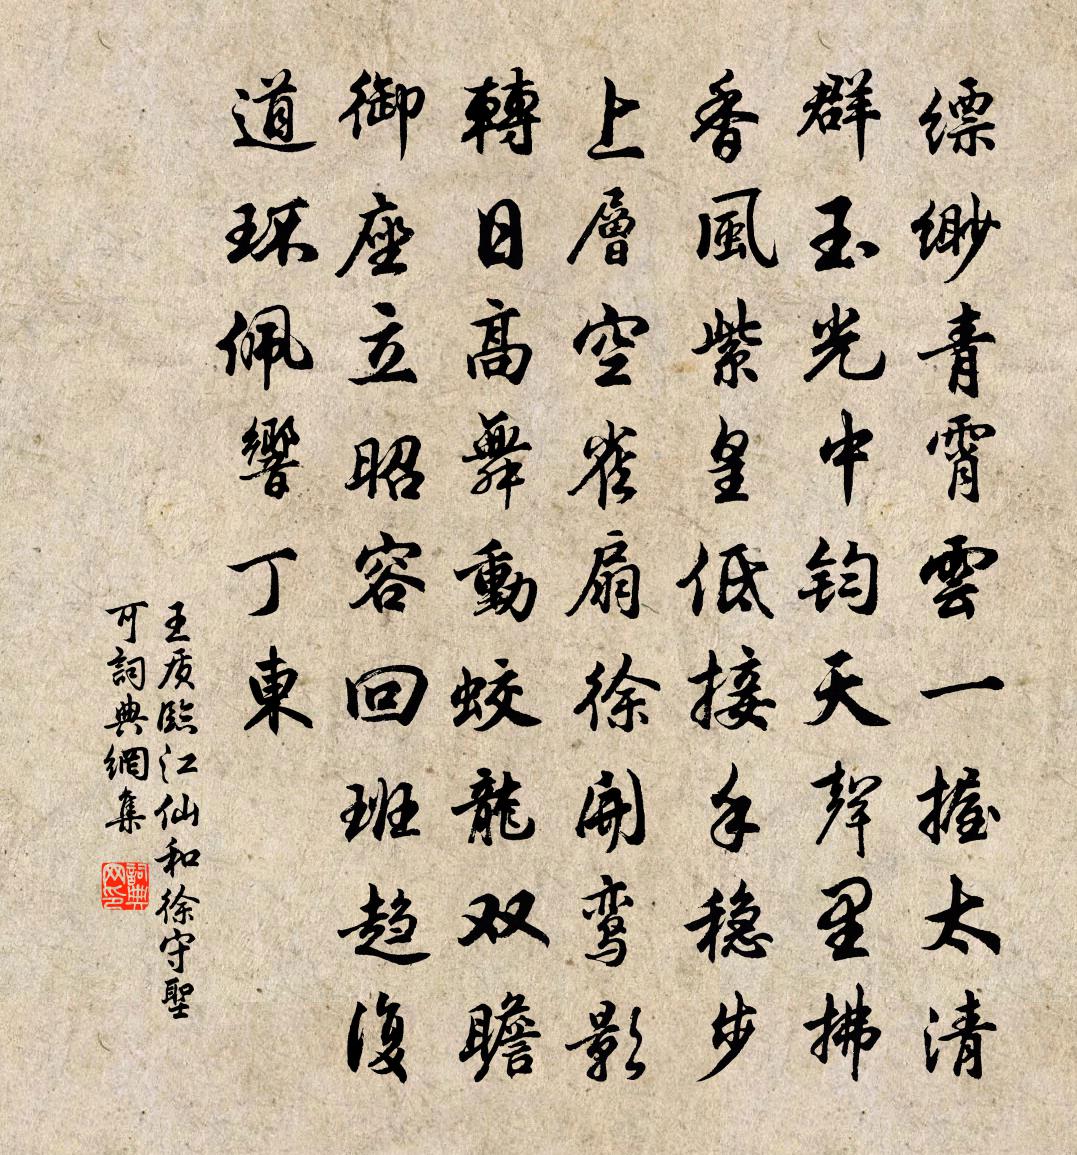 缥缈青霄雲一握太清
群玉光中钧天聲里拂
香風紫皇低接手穩步
上層空雀扇徐開鸾影
轉日高舞動蛟龍双瞻
御座立昭容回班趋復
道环佩響丁東
王质臨江仙和徐守聖
可詞典網集
詞典网印